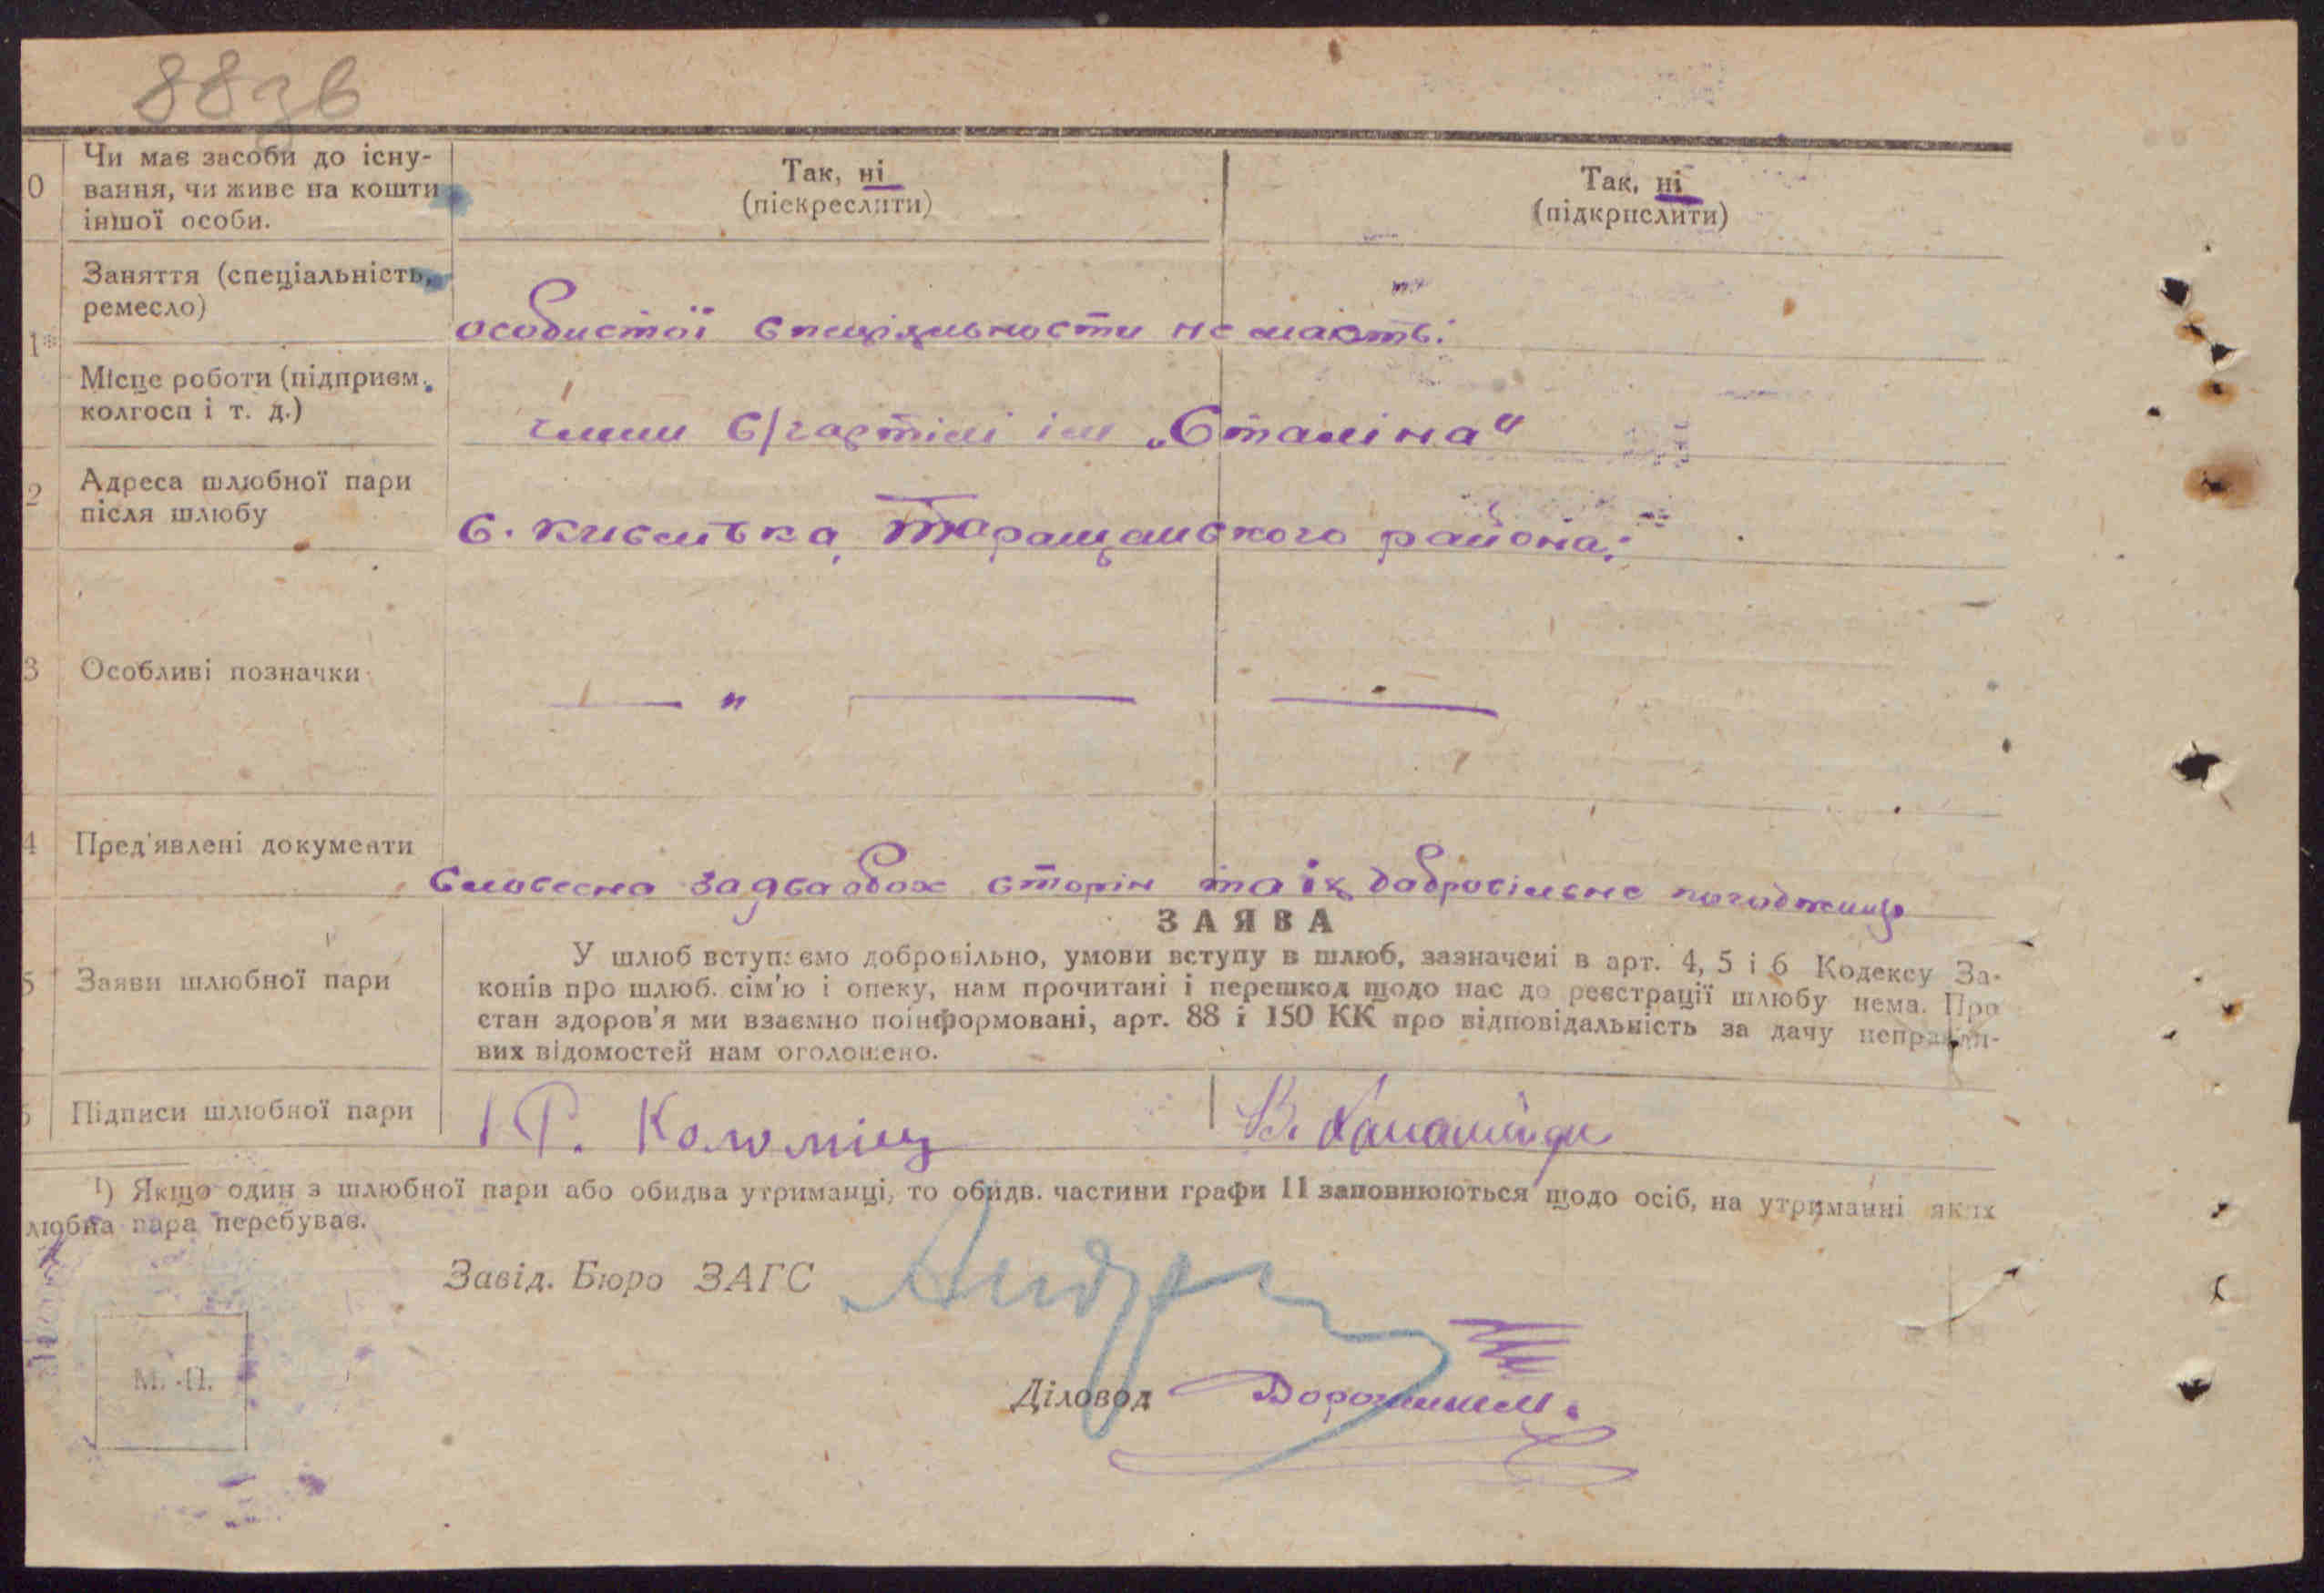 88зв
0 Чи має засоби до існу-
вання, чи живе на кошти
іншої особи.
Так, ні
(піекреслити)
Так, ні
(підкрислити)
Заняття (спеціальність,
ремесло)
особистої спеціяльности не мають.
1
Місце роботи (підприєм.
колгосп і т. д.)
члени с/г артілі ім „Сталіна"
2 Адреса шлюбної пари
після шлюбу
с. Кислівка, Таращанського района.
3 Особливі позначки
— " — —
4 Пред'явлені документи
словесна обох сторін та їх добровільне погодження
ЗАЯВА
5 Заяви шлюбної пари
У шлюб вступаємо добровільно, умови вступу в шлюб, зазначені в арт. 4, 5 і 6 Кодексу За-
конів про шлюб. сім'ю і опеку, нам прочитані і перешкод щодо нас до реєстрації шлюбу нема. Про
стан здоров'я ми взаємно поінформовані, арт. 88 і 150 КК про відповідальність за дачу неправди-
вих відомостей нам оголошено.
Підписи шлюбної пари
Р. Коломієц
В.
1) Якщо один з шлюбної пари або обидва утриманці, то обидв. частини графи 11 заповнюються щодо осіб, на утриманні яких
любна пара перебуває.
Завід. Бюро ЗАГС
М. П.
Діловод